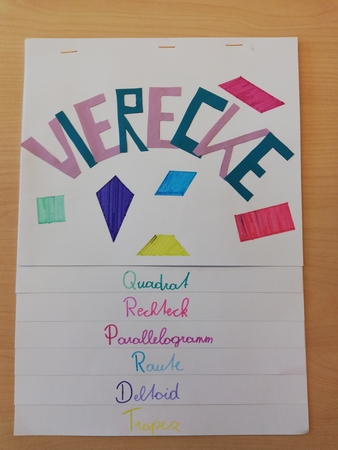 VIERECKE
Quadrat
Rechteck
Parallelogramm
Raute
Deltoid
Trapez